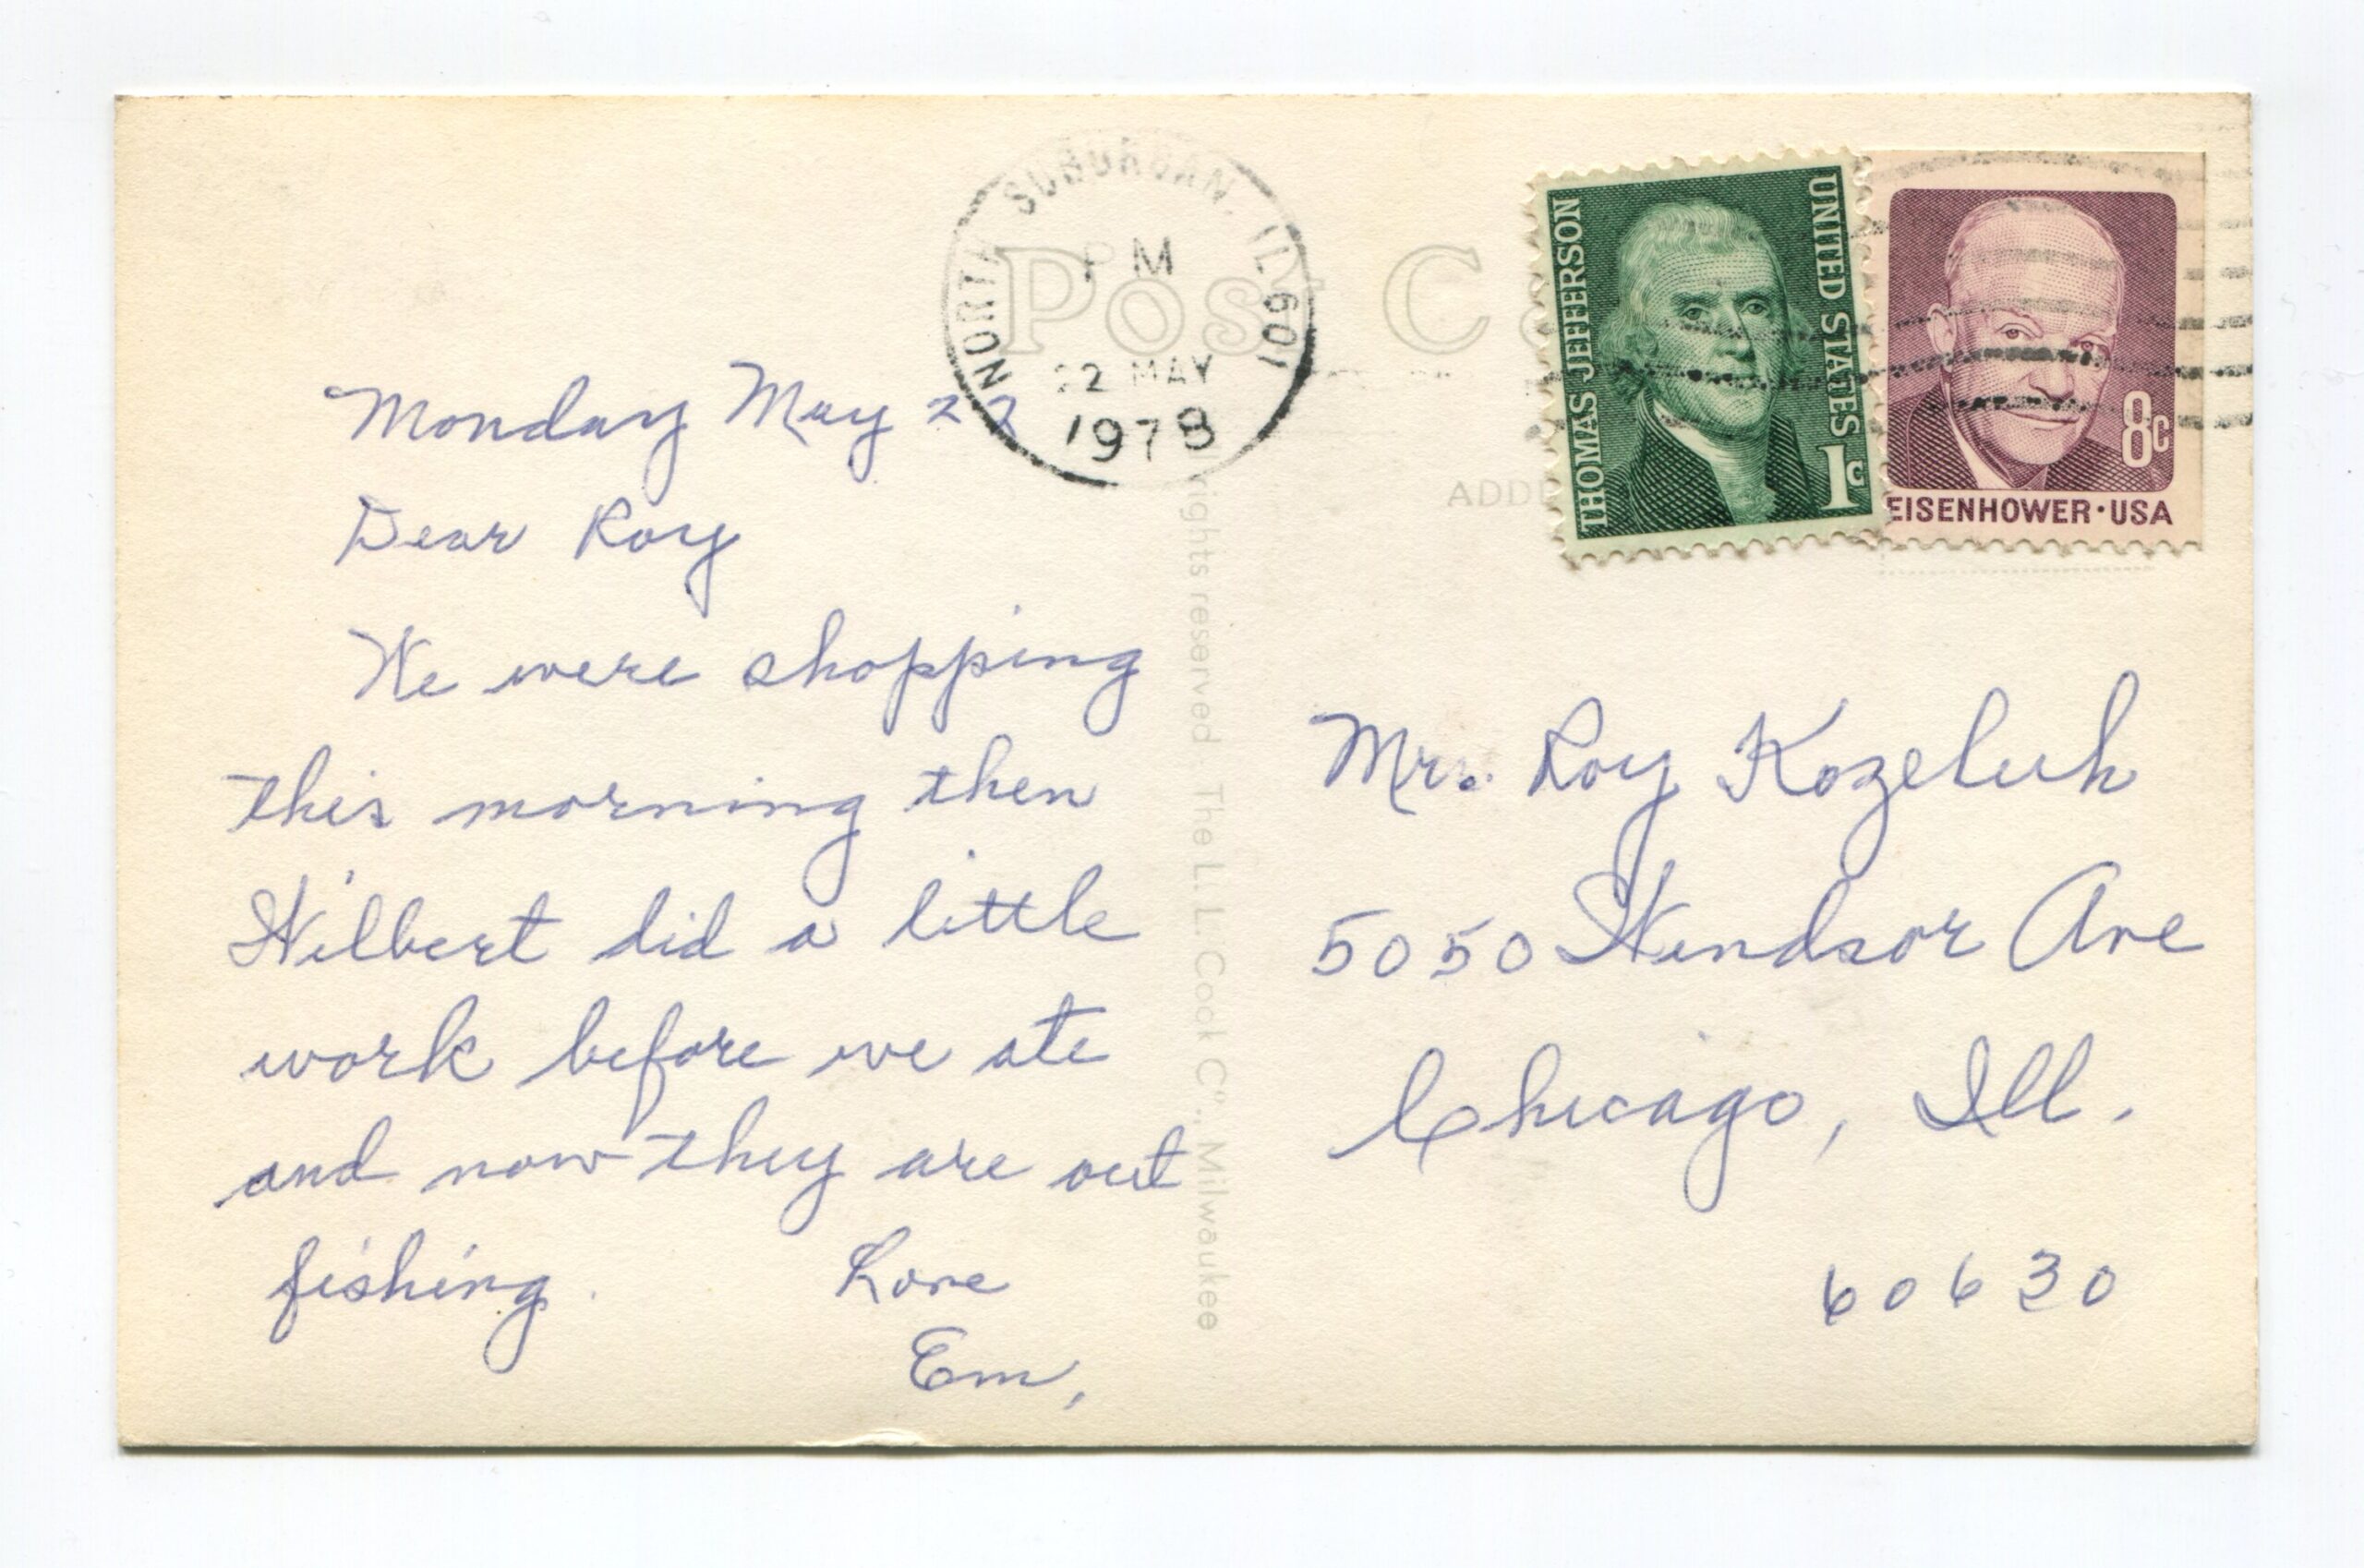 Monday May 22
Dear Roy
We were shopping
this morning then
Wilbert did a little
work before we ate
and now they are out
fishing.
Love
Em,
NORTH SUBURBAN, IL 601
PM
22 MAY
1978
Post C
rights reserved. The L. L. Cook Co., Milwaukee
THOMAS JEFFERSON
UNITED STATES
1c
8c
EISENHOWER·USA
Mr. Roy Kozeluh
5050 Windsor Ave
Chicago, Ill.
60630